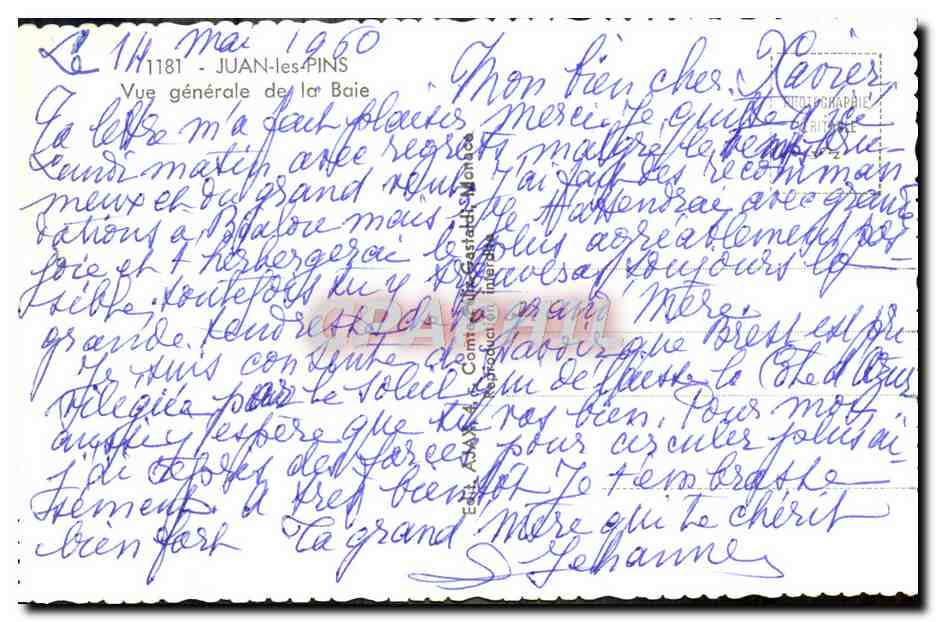 Le 14 mai 1960
1181 - JUAN-les-PINS
Vue générale de la Baie
Mon bien cher Xavier
PHOTOGRAPHIE
VÉRITABLE
Ta lettre m'a fait plaisir merci. Je quitte ici
Lundi matin avec regrets malgré le temps bru-
meux et du grand vent. J'ai fait des recomman
dations à mais je t'attendrai avec grande
joie et t'hébergerai le plus agréablement pos
sible. toutefois tu y trouveras toujours la
grande tendresse de ta grand'Mère.
Je suis contente de savoir que Brest est pri
vilégiée pour le soleil qui délaisse la Côte d'Azur
aussi j'espère que tu vas bien. Pour moi
j'ai repris des forces pour circuler plus ai-
sément. à très bientôt Je t'embrasse
bien fort Ta grand Mère qui te chérit
Jehanne
Edit. AJAX 4, C. Comte Félix Gastaldi, Monaco
Reproduction interdite
CPARAMA